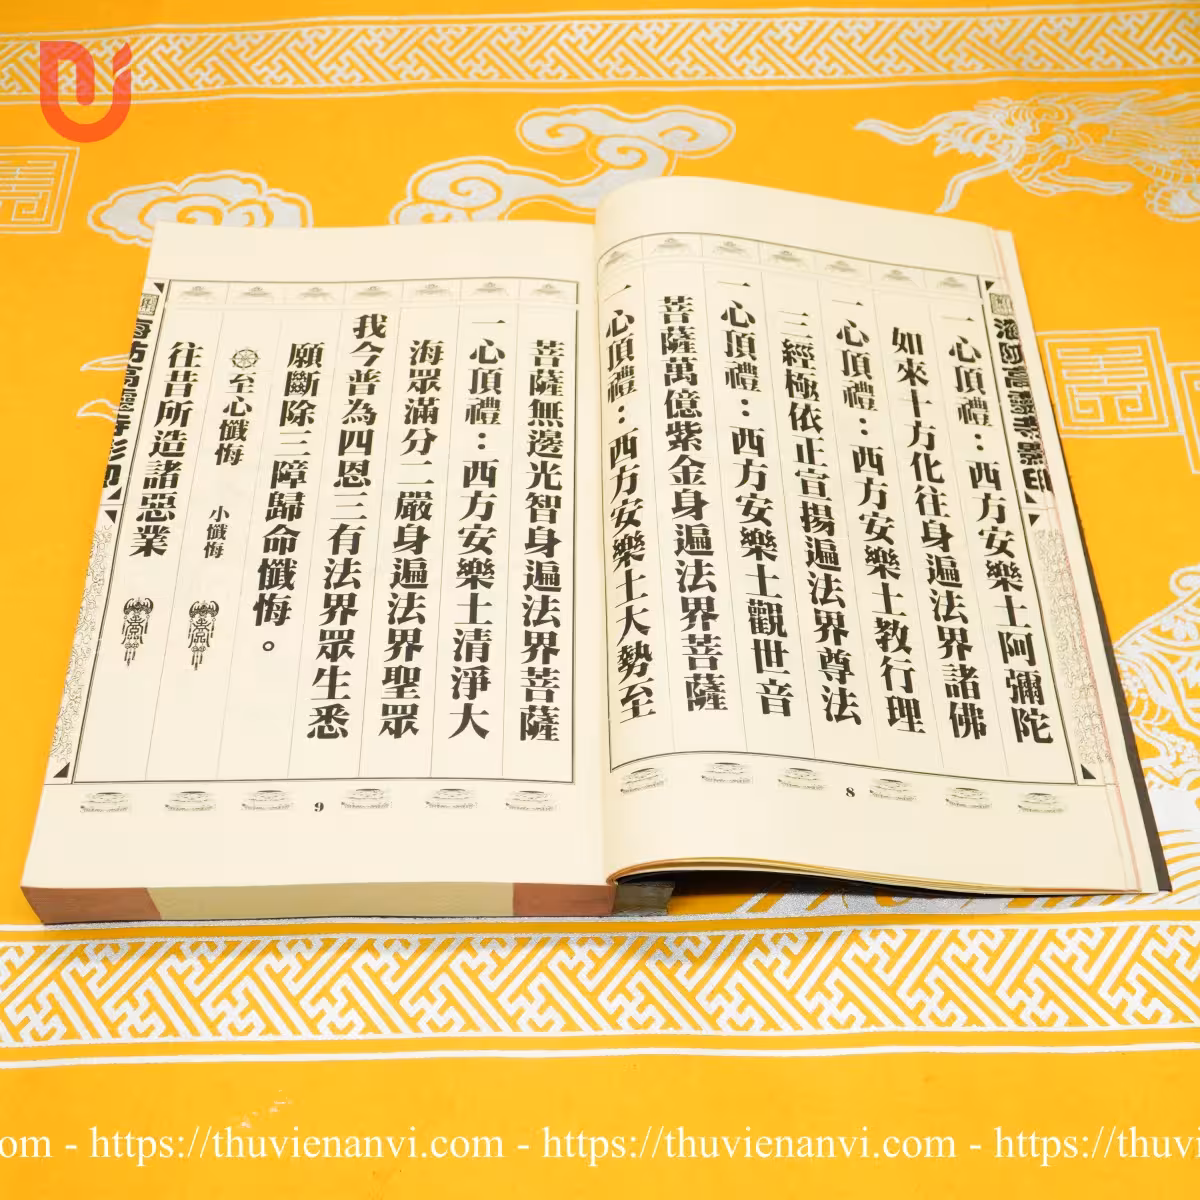 一心頂禮：西方安樂土阿彌陀
如來十方化往身遍法界諸佛
一心頂禮：西方安樂土教行理
三經極依正宣揚遍法界尊法
一心頂禮：西方安樂土觀世音
菩薩萬億紫金身遍法界菩薩
一心頂禮：西方安樂土大勢至
8
菩薩無邊光智身遍法界菩薩
一心頂禮：西方安樂土清淨大
海眾滿分二嚴身遍法界聖眾
我今普為四恩三有法界眾生悉
願斷除三障歸命懺悔。
至心懺悔 小懺悔
往昔所造諸惡業
9
om - https://thuvienanvi.com - https://thuvienanvi.com - https://thuvi